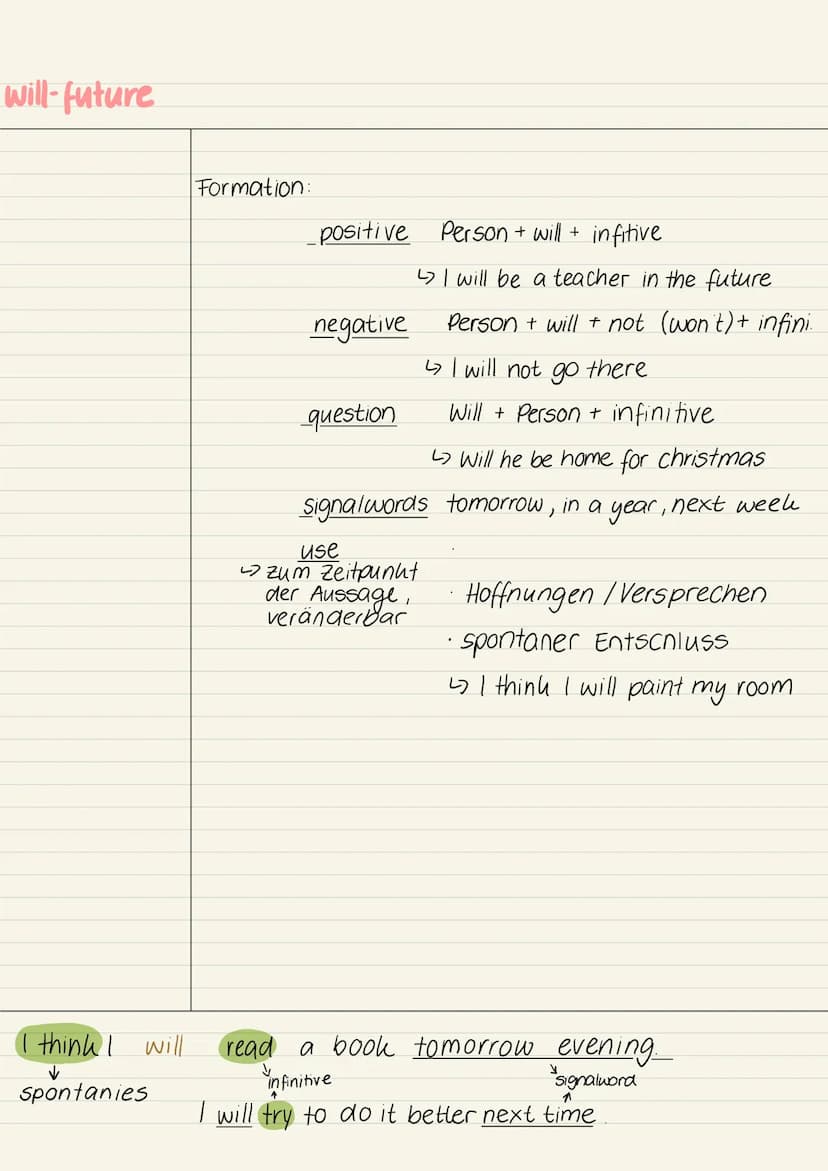 will-future
Formation:
positive Person + will + infitive
↳ I will be a teacher in the future
negative Person + will + not (won't) + infini.
↳ I will not go there
question Will + Person + infinitive
↳ Will he be home for christmas
signalwords tomorrow, in a year, next week
use
↳ zum Zeitpunkt
der Aussage,
veränderbar
· Hoffnungen / Versprechen
· spontaner Entschluss
↳ I think I will paint my room
I think I will read a book tomorrow evening.
infinitive signalword
spontanies
I will try to do it better next time.